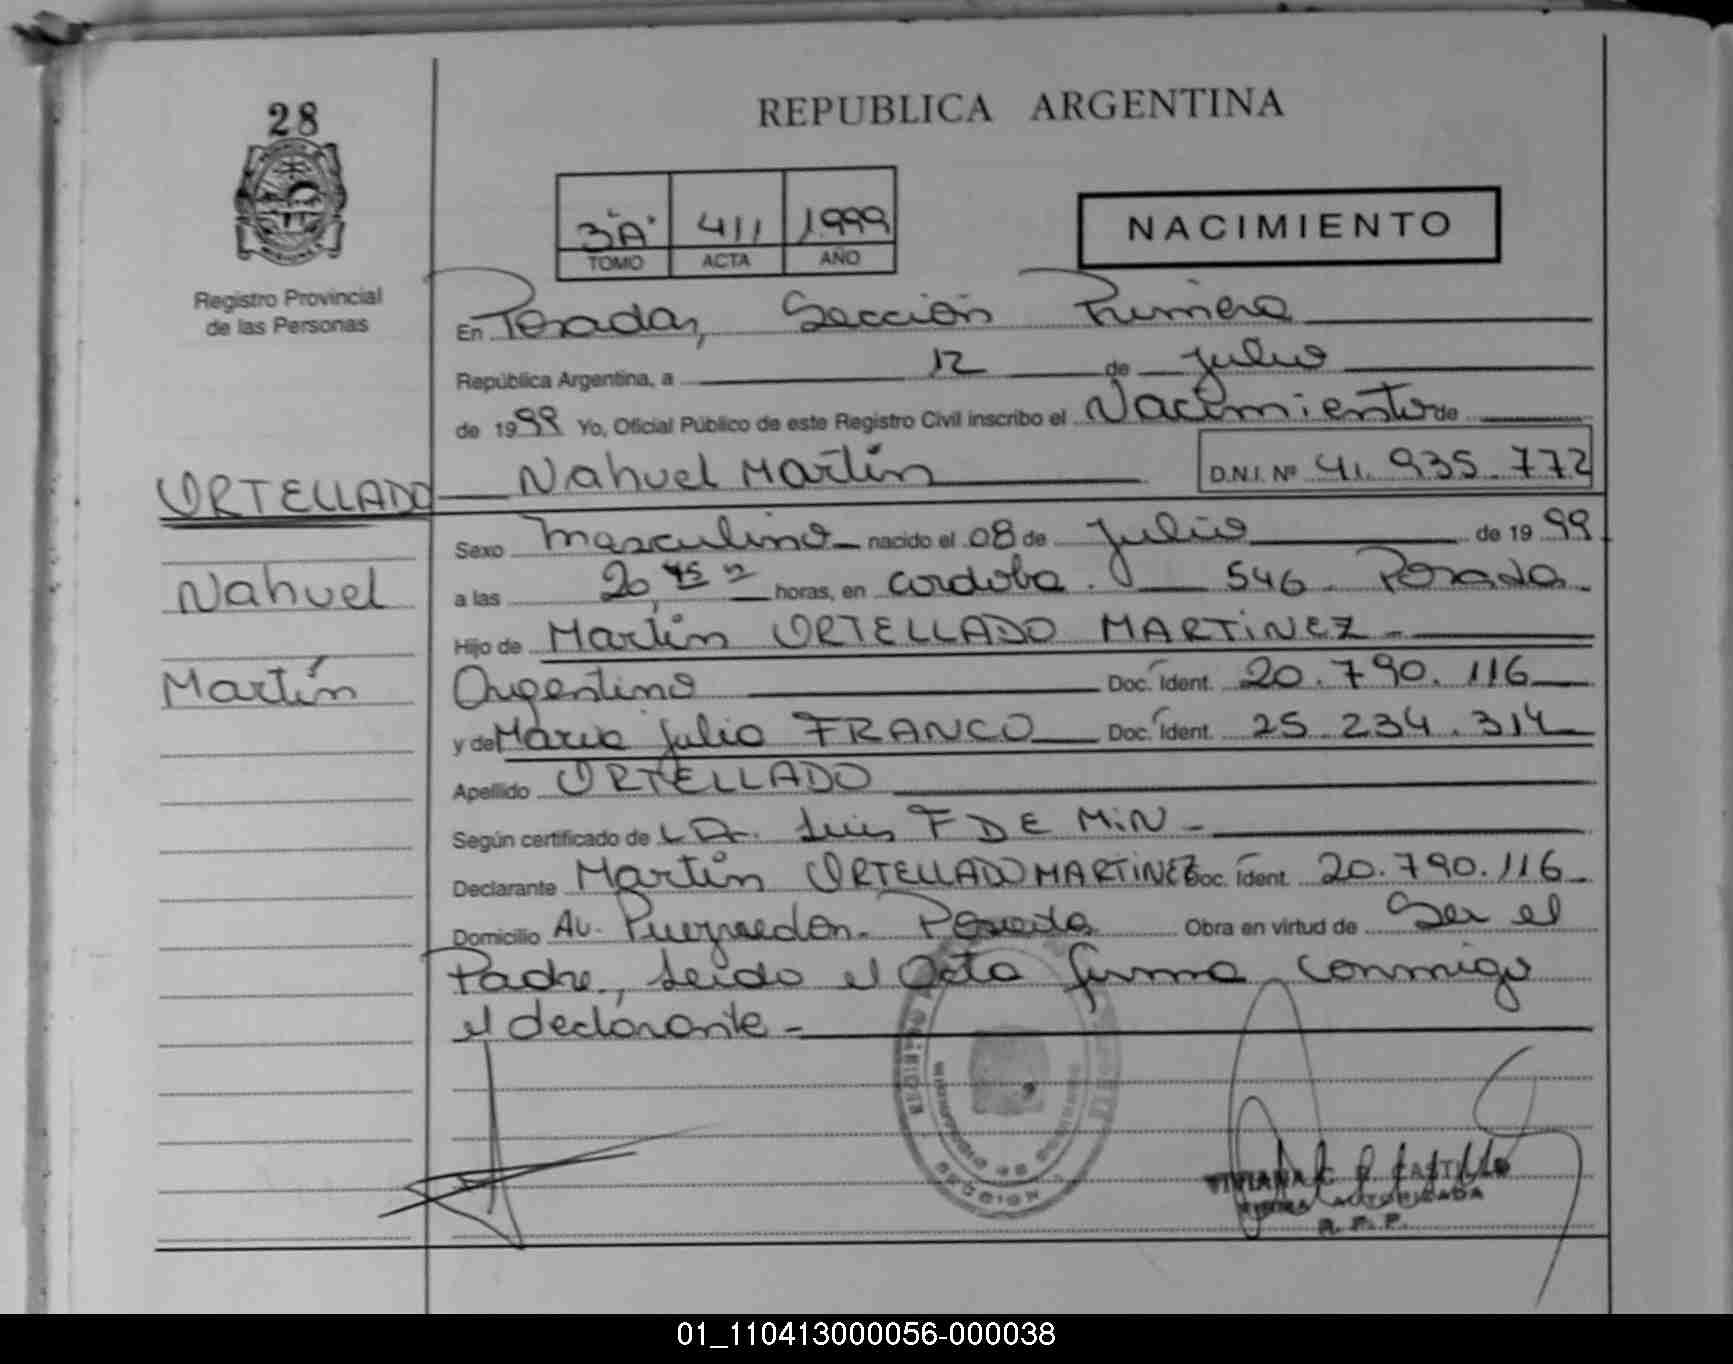 28
REPUBLICA ARGENTINA
3"A" 411 1999
TOMO ACTA AÑO
NACIMIENTO
Registro Provincial
de las Personas
En Posadas, Sección Primera
República Argentina, a 12 de Julio
de 1999 Yo, Oficial Público de este Registro Civil inscribo el Nacimiento de
ORTELLADO Nahuel Martín D.N.I. Nº 41.935.772
Sexo Masculino nacido el 08 de Julio de 1999
a las 20,45 horas, en Cordoba. 546 Posadas
Nahuel
Hijo de Martín ORTELLADO MARTINEZ
Martín
Argentino Doc. Ident. 20.790.116
y de Maria Julia FRANCO Doc. Ident. 25.234.314
Apellido ORTELLADO
Según certificado de Dr. Luis F DE MIN
Declarante Martín ORTELLADO MARTINEZ Doc. Ident. 20.790.116
Domicilio Av. Pueyrredon. Posadas Obra en virtud de Ser el
Padre, Leido el Acta firma conmigo
el declarante
VIVIANA C. R. CASTILLO
FIRMA AUTORIZADA
R. P. P.
01_110413000056-000038